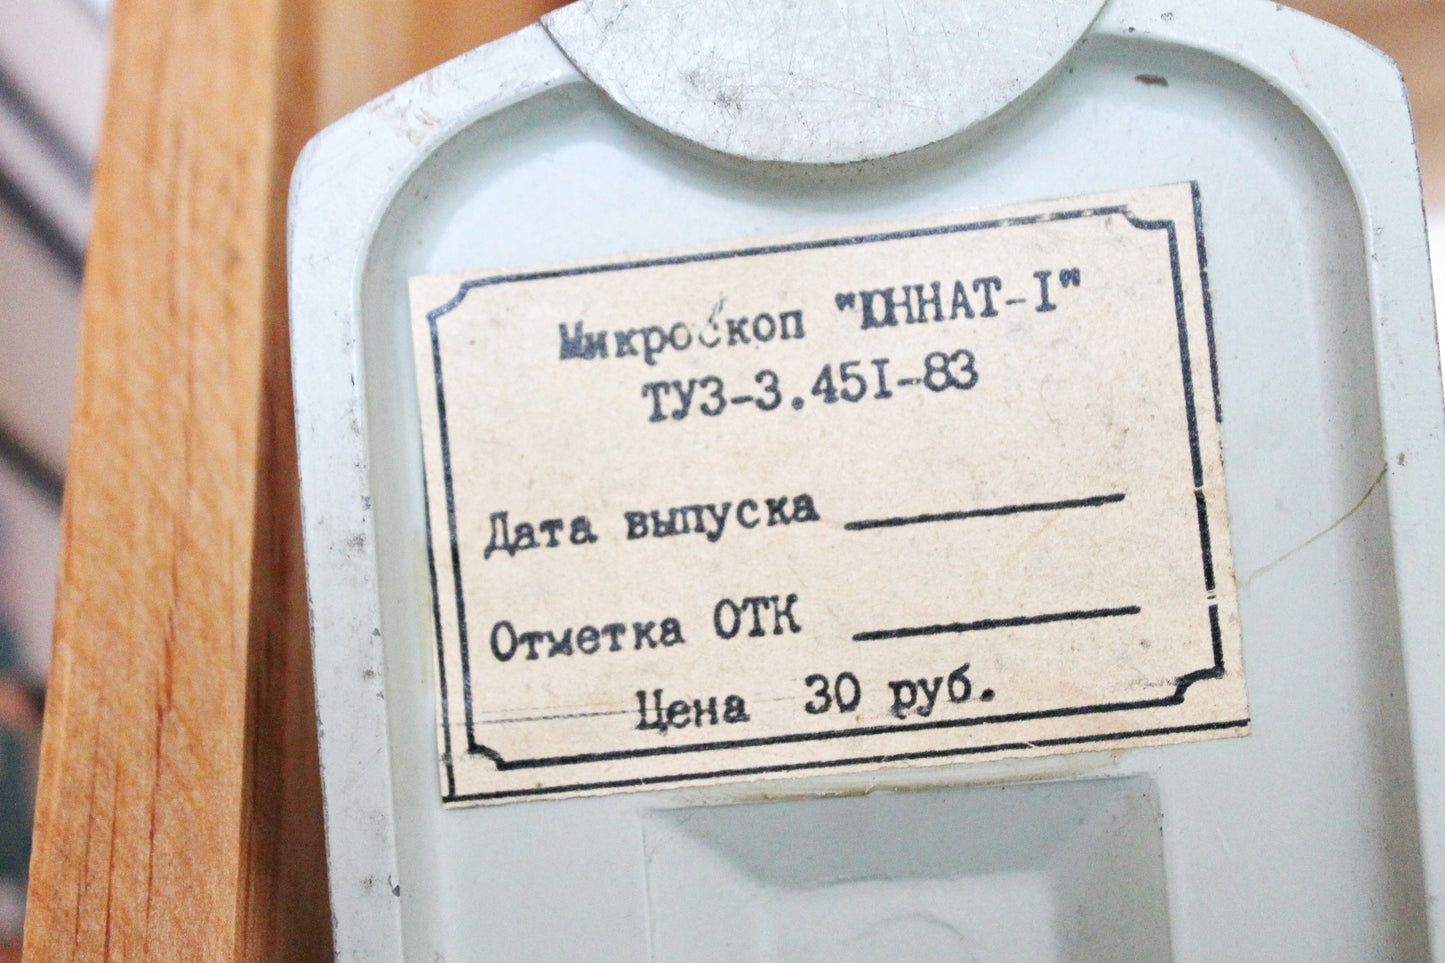 Микроскоп "ЮННАТ-I"
ТУ3-3.45I-83
Дата выпуска
Отметка ОТК
Цена 30 руб.